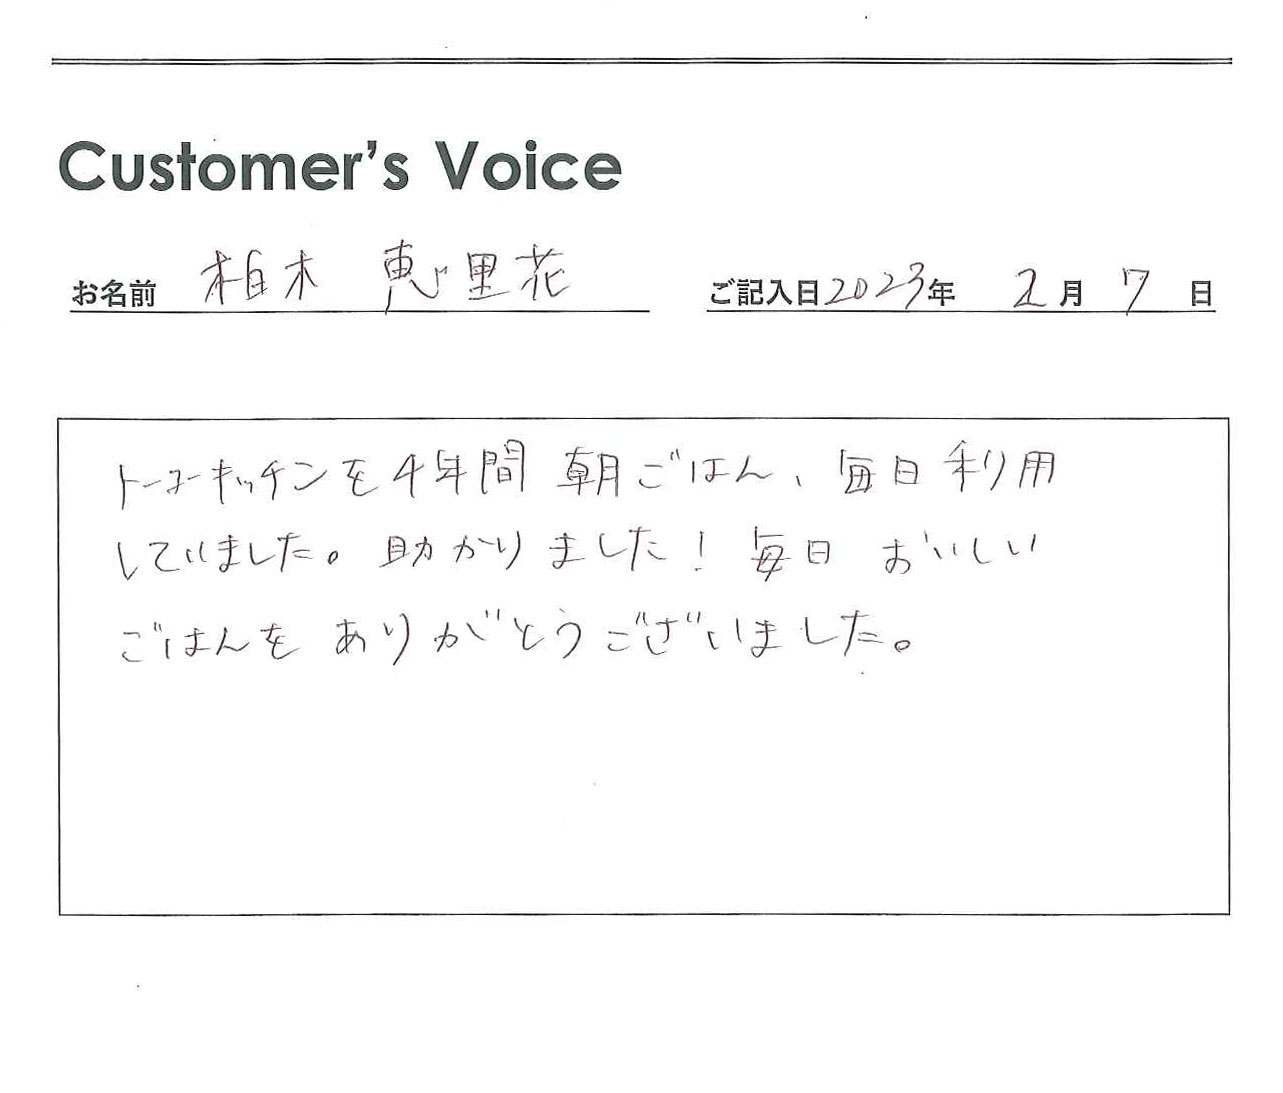 Customer's Voice
お名前 柏木 恵里花 ご記入日2023年 2月 7 日
トーコーキッチンを4年間 朝ごはん、毎日利用
していました。助かりました！毎日 おいしい
ごはんを ありがとうございました。